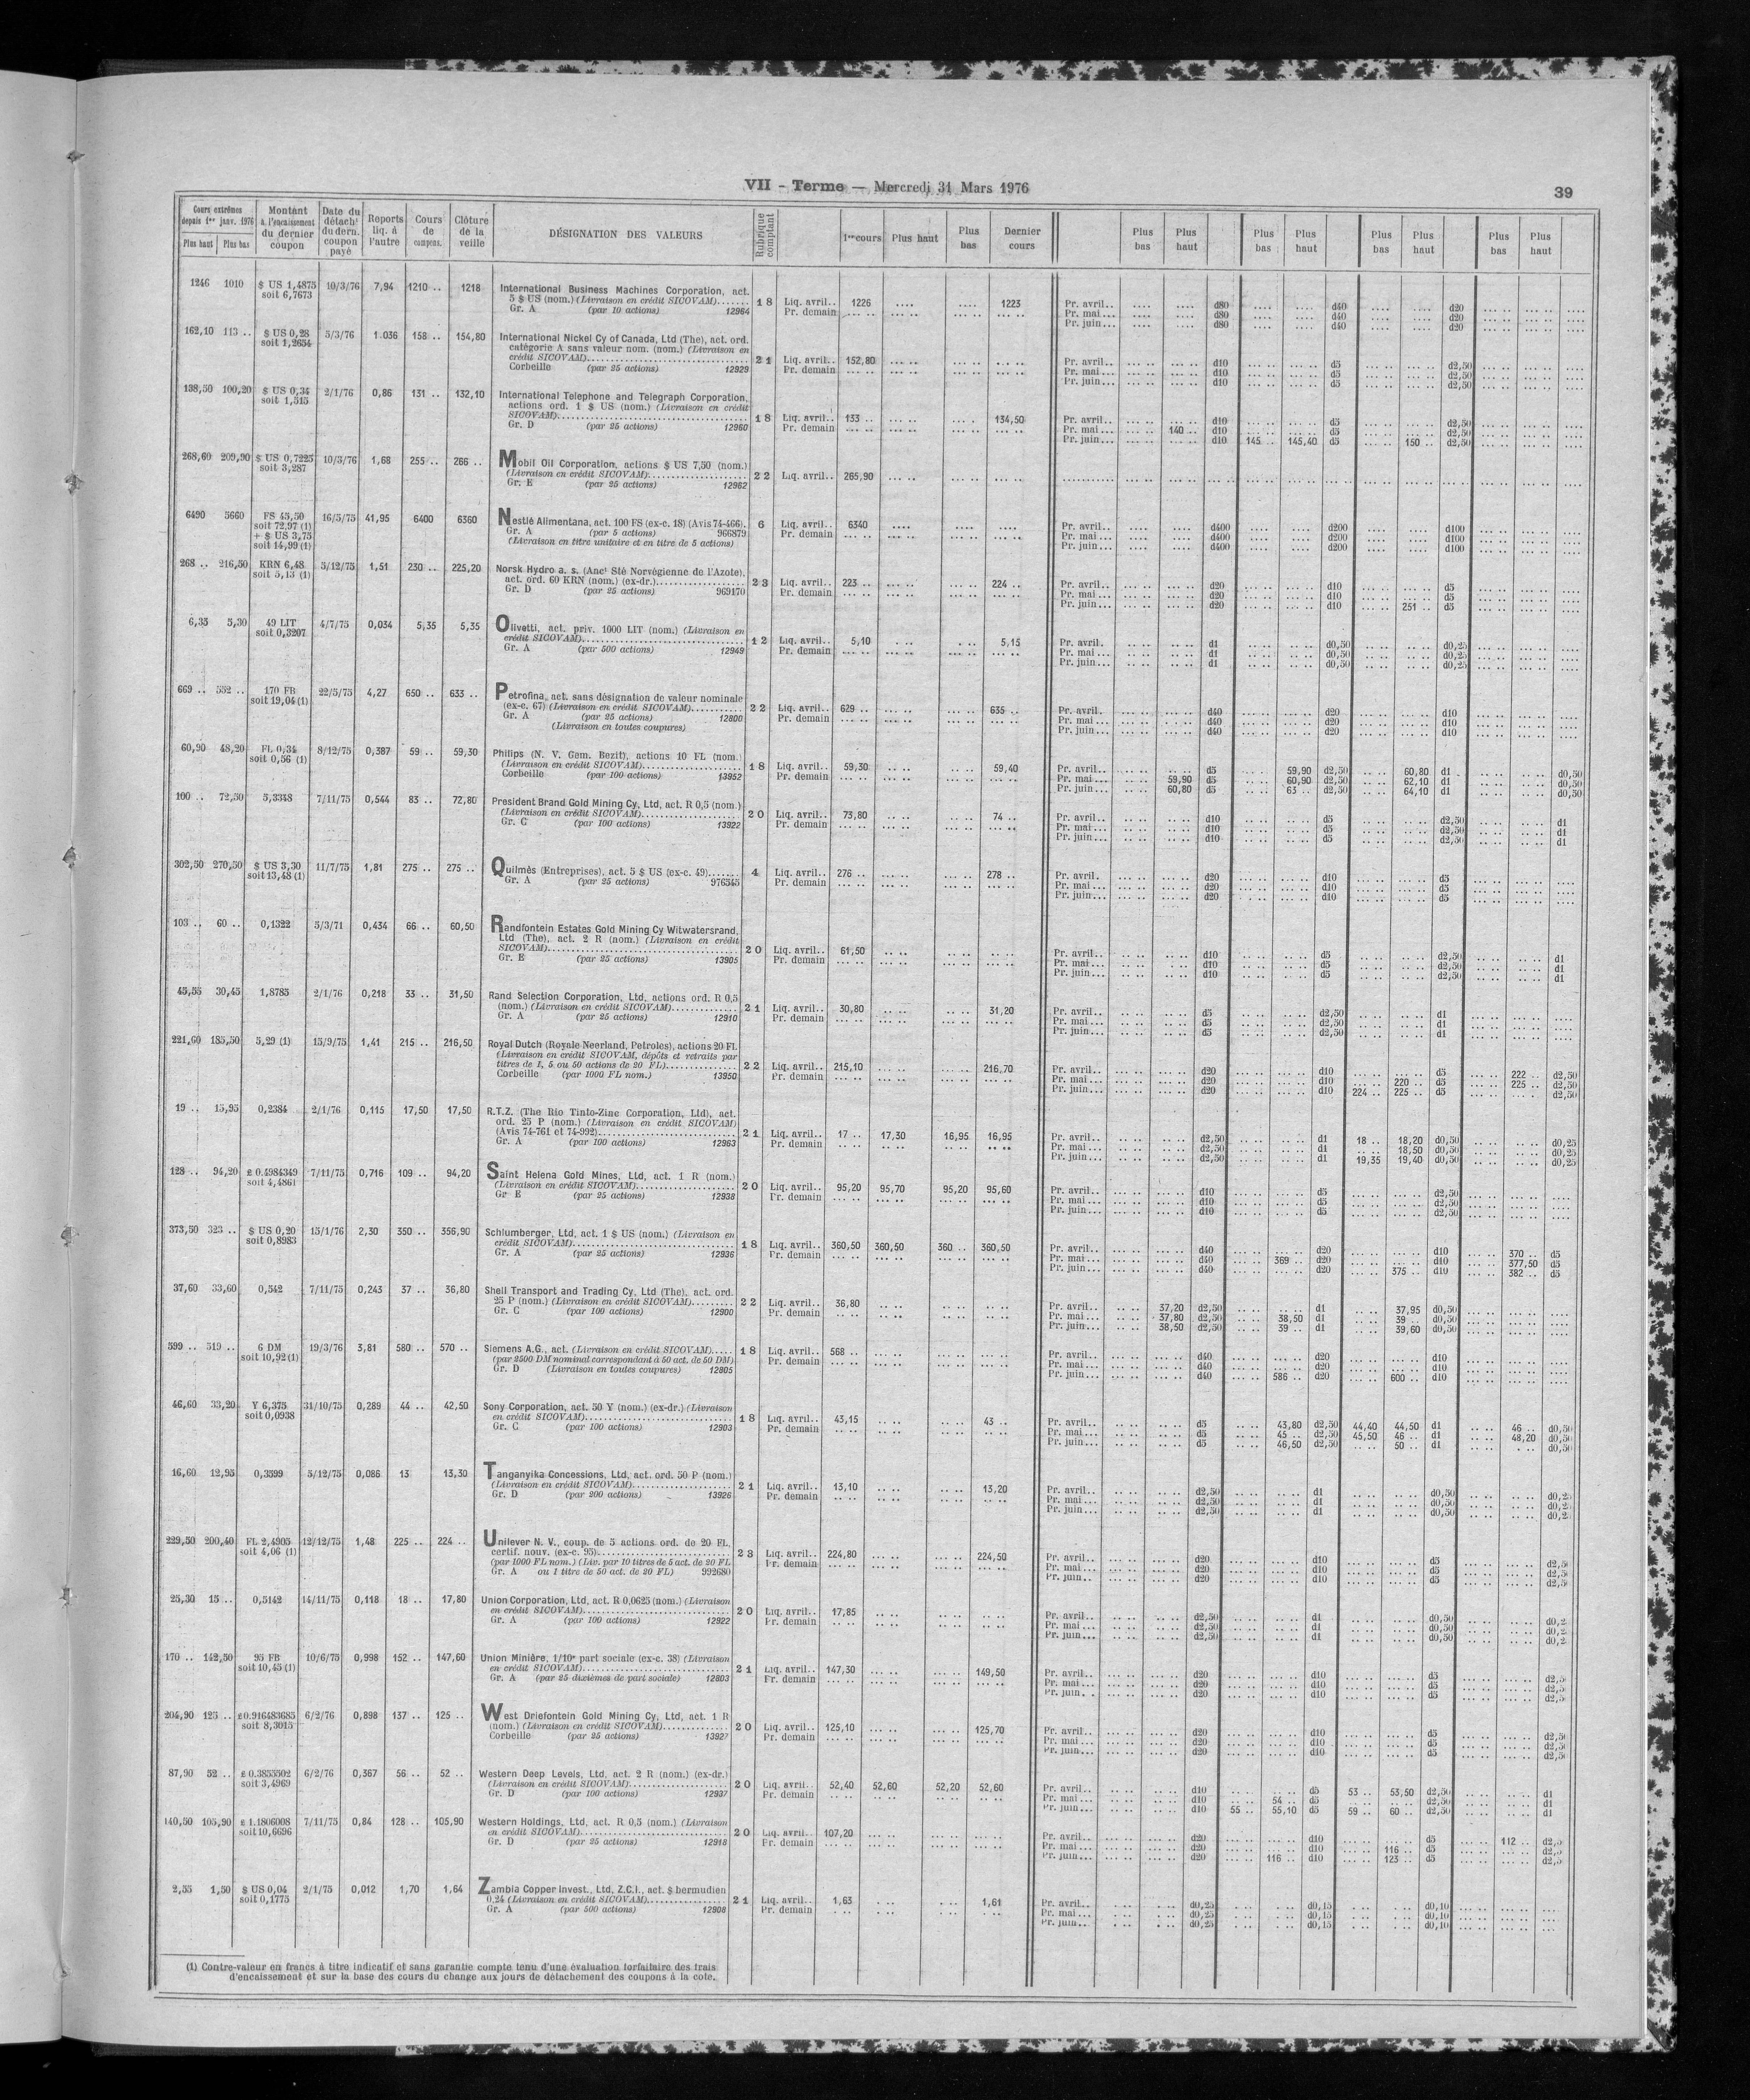 VII - Terme — Mercredi 31 Mars 1976
39
Cours extrêmes depuis 1er janv. 1976 Plus haut Plus bas
Montant à l'encaissement du dernier coupon
Date du détacht du dern. coupon payé
Reports liq. à l'autre
Cours de compens.
Clôture de la veille
DÉSIGNATION DES VALEURS
Rubrique comptant
1er cours Plus haut Plus bas Dernier cours
Plus bas Plus haut Plus bas Plus haut Plus bas Plus haut Plus bas Plus haut
1246 1010 $ US 1,4875 10/3/76 7,94 1210 .. 1218 International Business Machines Corporation, act.
soit 6,7673 5 $ US (nom.) (Livraison en crédit SICOVAM)....... 18 Liq. avril.. 1226 .... .... 1223 Pr. avril.. .... .... d80 .... .... d40 .... .... d20
Gr. A (par 10 actions) 12964 Pr. demain Pr. mai... d80 d40 d20
Pr. juin... d80 d40 d20
162,10 113 .. $ US 0,28 5/3/76 1.036 158 .. 154,80 International Nickel Cy of Canada, Ltd (The), act. ord.
soit 1,2654 catégorie A sans valeur nom. (nom.) (Livraison en
crédit SICOVAM) 21 Liq. avril.. 152,80 Pr. avril.. d10 d5 d2,50
Corbeille (par 25 actions) 12929 Pr. demain Pr. mai... d10 d5 d2,50
Pr. juin... d10 d5 d2,50
138,50 100,20 $ US 0,34 2/1/76 0,86 131 .. 132,10 International Telephone and Telegraph Corporation,
soit 1,515 actions ord. 1 $ US (nom.) (Livraison en crédit
SICOVAM) 18 Liq. avril.. 133 .. 134,50 Pr. avril.. d10 d5 d2,50
Gr. D (par 25 actions) 12960 Pr. demain Pr. mai... 140 .. d10 d5 d2,50
Pr. juin... d10 145 .. 145,40 d5 150 .. d2,50
268,60 209,90 $ US 0,7225 10/3/76 1,68 255 .. 266 .. Mobil Oil Corporation, actions $ US 7,50 (nom.)
soit 3,287 (Livraison en crédit SICOVAM) 22 Liq. avril.. 265,90
Gr. E (par 25 actions) 12962
6490 5660 FS 45,50 16/5/75 41,95 6400 6360 Nestlé Alimentana, act. 100 FS (ex-c. 18) (Avis 74-466). 6 Liq. avril.. 6340 Pr. avril.. d400 d200 d100
soit 72,97 (1) Gr. A (par 5 actions) 966879 Pr. demain Pr. mai... d400 d200 d100
+ $ US 3,75 (Livraison en titre unitaire et en titre de 5 actions) Pr. juin... d400 d200 d100
soit 14,99 (1)
268 .. 216,50 KRN 6,48 5/12/75 1,51 230 .. 225,20 Norsk Hydro a. s. (Anct Sté Norvégienne de l'Azote),
soit 5,13 (1) act. ord. 60 KRN (nom.) (ex-dr.) 23 Liq. avril.. 223 .. 224 .. Pr. avril.. d20 d10 d5
Gr. D (par 25 actions) 969170 Pr. demain Pr. mai... d20 d10 d5
Pr. juin... d20 d10 251 .. d5
6,35 5,30 49 LIT 4/7/75 0,034 5,35 5,35 Olivetti, act. priv. 1000 LIT (nom.) (Livraison en
soit 0,3207 crédit SICOVAM) 12 Liq. avril.. 5,10 5,15 Pr. avril. d1 d0,50 d0,25
Gr. A (par 500 actions) 12949 Pr. demain Pr. mai... d1 d0,50 d0,25
Pr. juin... d1 d0,50 d0,25
669 .. 552 .. 170 FB 22/5/75 4,27 650 .. 633 .. Petrofina, act. sans désignation de valeur nominale
soit 19,04 (1) (ex-c. 67) (Livraison en crédit SICOVAM) 22 Liq. avril.. 629 .. 635 .. Pr. avril. d40 d20 d10
Gr. A (par 25 actions) 12800 Pr. demain Pr. mai... d40 d20 d10
(Livraison en toutes coupures) Pr. juin... d40 d20 d10
60,90 48,20 FL 0,34 8/12/75 0,387 59 .. 59,30 Philips (N. V. Gem. Bezit), actions 10 FL (nom.)
soit 0,56 (1) (Livraison en crédit SICOVAM) 18 Liq. avril.. 59,30 59,40 Pr. avril.. d5 59,90 d2,50 60,80 d1 d0,50
Corbeille (par 100 actions) 13952 Pr. demain Pr. mai... 59,90 d5 60,90 d2,50 62,10 d1 d0,50
Pr. juin... 60,80 d5 63 .. d2,50 64,10 d1 d0,50
100 .. 72,50 5,3348 7/11/75 0,544 83 .. 72,80 President Brand Gold Mining Cy, Ltd, act. R 0,5 (nom.)
(Livraison en crédit SICOVAM) 20 Liq. avril.. 73,80 74 .. Pr. avril.. d10 d5 d2,50 d1
Gr. C (par 100 actions) 13922 Pr. demain Pr. mai... d10 d5 d2,50 d1
Pr. juin... d10 d5 d2,50 d1
302,50 270,50 $ US 3,30 11/7/75 1,81 275 .. 275 .. Quilmès (Entreprises), act. 5 $ US (ex-c. 49)....... 4 Liq. avril.. 276 .. 278 .. Pr. avril. d20 d10 d5
soit 13,48 (1) Gr. A (par 25 actions) 976345 Pr. demain Pr. mai... d20 d10 d5
Pr. juin... d20 d10 d5
103 .. 60 .. 0,1322 5/3/71 0,434 66 .. 60,50 Randfontein Estates Gold Mining Cy Witwatersrand,
Ltd (The), act. 2 R (nom.) (Livraison en crédit
SICOVAM) 20 Liq. avril.. 61,50 Pr. avril.. d10 d5 d2,50 d1
Gr. E (par 25 actions) 13905 Pr. demain Pr. mai... d10 d5 d2,50 d1
Pr. juin... d10 d5 d2,50 d1
45,55 30,45 1,8785 2/1/76 0,218 33 .. 31,50 Rand Selection Corporation, Ltd, actions ord. R 0,5
(nom.) (Livraison en crédit SICOVAM) 21 Liq. avril.. 30,80 31,20 Pr. avril.. d5 d2,50 d1
Gr. A (par 25 actions) 12910 Pr. demain Pr. mai... d5 d2,50 d1
Pr. juin... d5 d2,50 d1
221,60 185,50 5,29 (1) 15/9/75 1,41 215 .. 216,50 Royal Dutch (Royale Neerland, Petroles), actions 20 FL
(Livraison en crédit SICOVAM, dépôts et retraits par
titres de 1, 5 ou 50 actions de 20 FL) 22 Liq. avril.. 215,10 216,70 Pr. avril.. d20 d10 d5 222 .. d2,50
Corbeille (par 1000 FL nom.) 13950 Pr. demain Pr. mai... d20 d10 220 .. d5 225 .. d2,50
Pr. juin... d20 d10 224 .. 225 .. d5 d2,50
19 .. 15,95 0,2384 2/1/76 0,115 17,50 17,50 R.T.Z. (The Rio Tinto-Zinc Corporation, Ltd), act.
ord. 25 P (nom.) (Livraison en crédit SICOVAM)
(Avis 74-761 et 74-992) 21 Liq. avril.. 17 .. 17,30 16,95 16,95 Pr. avril.. d2,50 d1 18 .. 18,20 d0,50 d0,25
Gr. A (par 100 actions) 12963 Pr. demain Pr. mai... d2,50 d1 18,50 d0,50 d0,25
Pr. juin... d2,50 d1 19,35 19,40 d0,50 d0,25
128 .. 94,20 £ 0.4984349 7/11/75 0,716 109 .. 94,20 Saint Helena Gold Mines, Ltd, act. 1 R (nom.)
soit 4,4861 (Livraison en crédit SICOVAM) 20 Liq. avril.. 95,20 95,70 95,20 95,60 Pr. avril.. d10 d5 d2,50
Gr E (par 25 actions) 12938 Pr. demain Pr. mai... d10 d5 d2,50
Pr. juin... d10 d5 d2,50
373,50 323 .. $ US 0,20 15/1/76 2,30 350 .. 356,90 Schlumberger, Ltd, act. 1 $ US (nom.) (Livraison en
soit 0,8983 crédit SICOVAM) 18 Liq. avril.. 360,50 360,50 360 .. 360,50 Pr. avril.. d40 d20 d10 370 .. d5
Gr. A (par 25 actions) 12936 Pr. demain Pr. mai... d40 369 .. d20 d10 377,50 d5
Pr. juin... d40 d20 375 .. d10 382 .. d5
37,60 33,60 0,542 7/11/75 0,243 37 .. 36,80 Shell Transport and Trading Cy, Ltd (The), act. ord.
25 P (nom.) (Livraison en crédit SICOVAM) 22 Liq. avril.. 36,80 Pr. avril.. 37,20 d2,50 d1 37,95 d0,50
Gr. C (par 100 actions) 12900 Pr. demain Pr. mai... 37,80 d2,50 38,50 d1 39 .. d0,50
Pr. juin... 38,50 d2,50 39 .. d1 39,60 d0,50
599 .. 519 .. 6 DM 19/3/76 3,81 580 .. 570 .. Siemens A.G., act. (Livraison en crédit SICOVAM)..... 18 Liq. avril.. 568 .. Pr. avril.. d40 d20 d10
soit 10,92 (1) (par 2500 DM nominal correspondant à 50 act. de 50 DM) Pr. demain Pr. mai... d40 d20 d10
Gr. D (Livraison en toutes coupures) 12805 Pr. juin... d40 586 .. d20 600 .. d10
46,60 33,20 Y 6,375 31/10/75 0,289 44 .. 42,50 Sony Corporation, act. 50 Y (nom.) (ex-dr.) (Livraison
soit 0,0938 en crédit SICOVAM) 18 Liq. avril.. 43,15 43 .. Pr. avril.. d5 43,80 d2,50 44,40 44,50 d1 46 .. d0,50
Gr. C (par 100 actions) 12903 Pr. demain Pr. mai... d5 45 .. d2,50 45,50 46 .. d1 48,20 d0,50
Pr. juin... d5 46,50 d2,50 50 .. d1 d0,50
16,60 12,95 0,3599 5/12/75 0,086 13 13,30 Tanganyika Concessions, Ltd, act. ord. 50 P (nom.)
(Livraison en crédit SICOVAM) 21 Liq. avril.. 13,10 13,20 Pr. avril.. d2,50 d1 d0,50
Gr. D (par 200 actions) 13926 Pr. demain Pr. mai... d2,50 d1 d0,50
Pr. juin... d2,50 d1 d0,50
229,50 200,40 FL 2,4905 12/12/75 1,48 225 .. 224 .. Unilever N. V., coup. de 5 actions ord. de 20 FL,
soit 4,06 (1) certif. nouv. (ex-c. 95) 23 Liq. avril.. 224,80 224,50 Pr. avril.. d20 d10 d5
(par 1000 FL nom.) (Liv. par 10 titres de 5 act. de 20 FL Pr. demain Pr. mai... d20 d10 d5
Gr. A ou 1 titre de 50 act. de 20 FL) 992680 Pr. juin.. d20 d10 d5
25,30 15 .. 0,5142 14/11/75 0,118 18 .. 17,80 Union Corporation, Ltd, act. R 0,0625 (nom.) (Livraison
en crédit SICOVAM) 20 Liq. avril.. 17,85 Pr. avril.. d2,50 d1 d0,50
Gr. A (par 100 actions) 12922 Pr. demain Pr. mai... d2,50 d1 d0,50
Pr. juin... d2,50 d1 d0,50
170 .. 142,50 95 FB 10/6/75 0,998 152 .. 147,60 Union Minière, 1/10e part sociale (ex-c. 38) (Livraison
soit 10,45 (1) en crédit SICOVAM) 21 Liq. avril.. 147,30 149,50 Pr. avril.. d20 d10 d5
Gr. A (par 25 dixièmes de part sociale) 12803 Pr. demain Pr. mai... d20 d10 d5
Pr. juin.. d20 d10 d5
204,90 125 .. £0.916483685 6/2/76 0,898 137 .. 125 .. West Driefontein Gold Mining Cy, Ltd, act. 1 R
soit 8,3015 (nom.) (Livraison en crédit SICOVAM) 20 Liq. avril.. 125,10 125,70 Pr. avril.. d20 d10 d5
Corbeille (par 25 actions) 13927 Pr. demain Pr. mai... d20 d10 d5
Pr. juin... d20 d10 d5
87,90 52 .. £ 0.3855502 6/2/76 0,367 56 .. 52 .. Western Deep Levels, Ltd, act. 2 R (nom.) (ex-dr.)
soit 3,4969 (Livraison en crédit SICOVAM) 20 Liq. avril.. 52,40 52,60 52,20 52,60 Pr. avril.. d10 d5 53 .. 53,50 d2,50 d1
Gr. D (par 100 actions) 12937 Pr. demain Pr. mai... d10 54 .. d5 d2,50 d1
Pr. juin... d10 55 .. 55,10 d5 59 .. 60 .. d2,50 d1
140,50 105,90 £ 1.1806008 7/11/75 0,84 128 .. 105,90 Western Holdings, Ltd, act. R 0,5 (nom.) (Livraison
soit 10,6696 en crédit SICOVAM) 20 Liq. avril.. 107,20 Pr. avril.. d20 d10 d5 112 ..
Gr. D (par 25 actions) 12918 Pr. demain Pr. mai... d20 d10 116 .. d5
Pr. juin... d20 116 .. d10 123 .. d5
2,55 1,50 $ US 0,04 2/1/75 0,012 1,70 1,64 Zambia Copper Invest., Ltd, Z.C.I., act. $ bermudien
soit 0,1775 0,24 (Livraison en crédit SICOVAM) 21 Liq. avril.. 1,63 1,61 Pr. avril.. d0,25 d0,15 d0,10
Gr. A (par 500 actions) 12908 Pr. demain Pr. mai... d0,25 d0,15 d0,10
Pr. juin.. d0,25 d0,15 d0,10
(1) Contre-valeur en francs à titre indicatif et sans garantie compte tenu d'une évaluation forfaitaire des frais
d'encaissement et sur la base des cours du change aux jours de détachement des coupons à la cote.